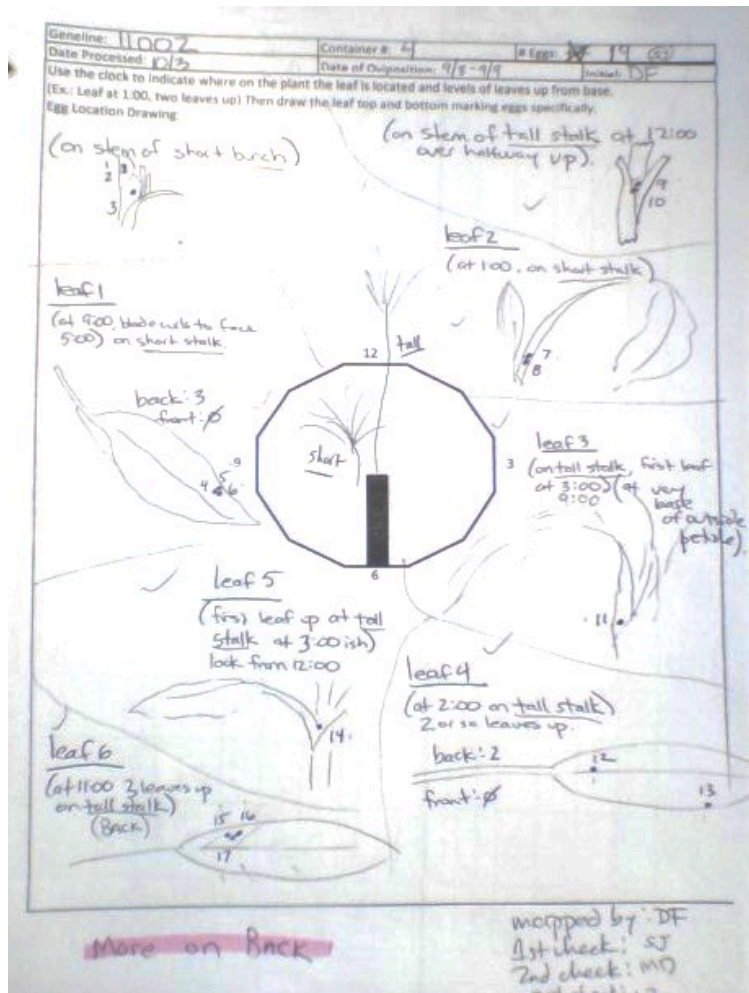 Geneline: 11002 Container #: 4 # Eggs: 19 (SJ)
Date Processed: 10/3 Date of Oviposition: 9/8-9/9 Initial: DF
Use the clock to indicate where on the plant the leaf is located and levels of leaves up from base.
(Ex.: Leaf at 1:00, two leaves up) Then draw the leaf top and bottom marking eggs specifically.
Egg Location Drawing
(on stem of short bunch)
1
2
3
(on stem of tall stalk at 12:00
over halfway up).
9
10
leaf 2
(at 1:00, on short stalk)
7
8
leaf 1
(at 9:00, blade curls to face
5:00) on short stalk.
back: 3
front: ø
4 5 6
tall
short
12
9
3
6
leaf 3
(on tall stalk, first leaf
at 3:00) (at very
9:00 base
of outside
petiole).
11
leaf 5
(first leaf up at tall
stalk at 3:00 ish)
look from 12:00
14
leaf 4
(at 2:00 on tall stalk)
2 or so leaves up.
back: 2
front: ø
12
13
leaf 6
(at 11:00 2 leaves up
on tall stalk)
(BACK)
15 16
17
More on BACK
mapped by: DF
1st check: SJ
2nd check: MD